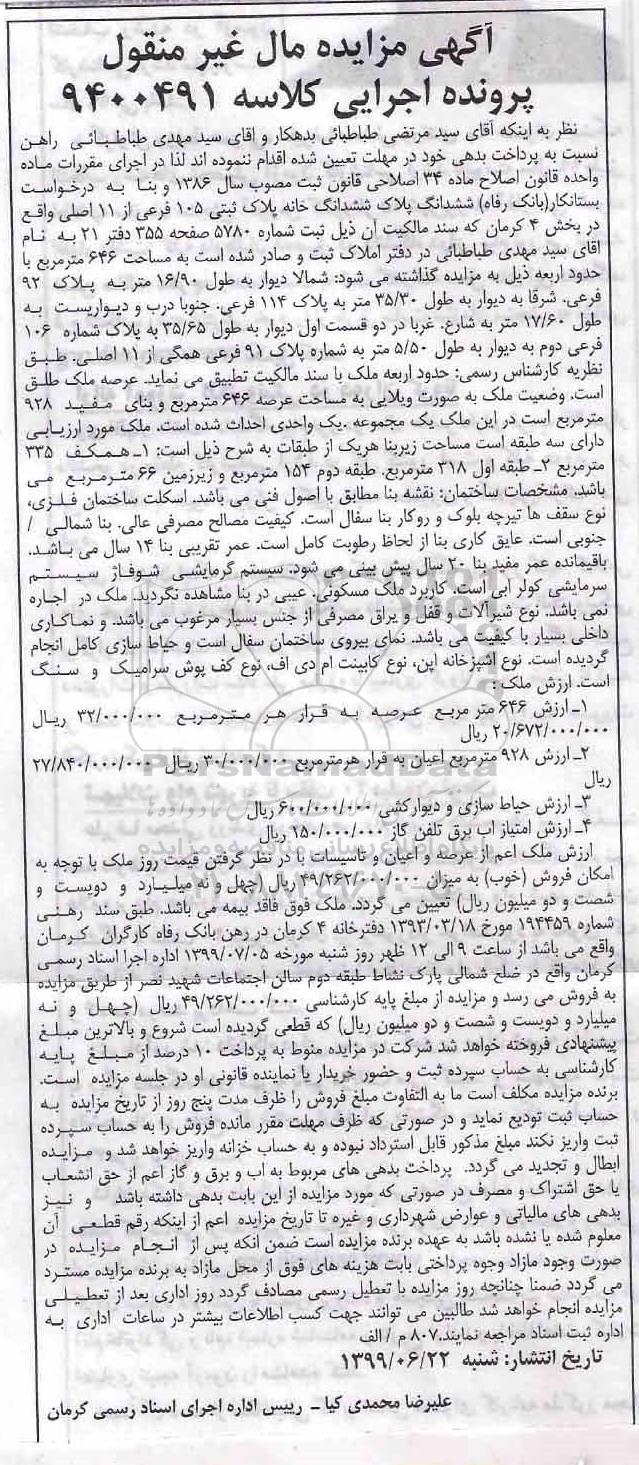 آگهی مزایده مال غیر منقول
پرونده اجرایی کلاسه ۹۴۰۰۴۹۱
نظر به اینکه آقای سید مرتضی طباطبائی بدهکار و اقای سید مهدی طباطبائی راهن
نسبت به پرداخت بدهی خود در مهلت تعیین شده اقدام ننموده اند لذا در اجرای مقررات ماده
واحده قانون اصلاح ماده ۳۴ اصلاحی قانون ثبت مصوب سال ۱۳۸۶ و بنا به درخواست
بستانکار(بانک رفاه) ششدانگ پلاک ششدانگ خانه پلاک ثبتی ۱۰۵ فرعی از ۱۱ اصلی واقع
در بخش ۴ کرمان که سند مالکیت آن ذیل ثبت شماره ۵۷۸۰ صفحه ۳۵۵ دفتر ۲۱ به نام
اقای سید مهدی طباطبائی در دفتر املاک ثبت و صادر شده است به مساحت ۶۴۶ مترمربع با
حدود اربعه ذیل به مزایده گذاشته می شود: شمالا دیوار به طول ۱۶/۹۰ متر به پلاک ۹۲
فرعی. شرقا به دیوار به طول ۳۵/۳۰ متر به پلاک ۱۱۴ فرعی. جنوبا درب و دیواریست به
طول ۱۷/۶۰ متر به شارع. غربا در دو قسمت اول دیوار به طول ۳۵/۶۵ به پلاک شماره ۱۰۶
فرعی دوم به دیوار به طول ۵/۵۰ متر به شماره پلاک ۹۱ فرعی همگی از ۱۱ اصلی. طبق
نظریه کارشناس رسمی: حدود اربعه ملک با سند مالکیت تطبیق می نماید. عرصه ملک طلق
است. وضعیت ملک به صورت ویلایی به مساحت عرصه ۶۴۶ مترمربع و بنای مفید ۹۲۸
مترمربع است در این ملک یک مجموعه .یک واحدی احداث شده است. ملک مورد ارزیابی
دارای سه طبقه است مساحت زیربنا هریک از طبقات به شرح ذیل است: ۱ـ همکف ۳۳۵
مترمربع ۲ـ طبقه اول ۳۱۸ مترمربع. طبقه دوم ۱۵۴ مترمربع و زیرزمین ۶۶ مترمربع می
باشد. مشخصات ساختمان: نقشه بنا مطابق با اصول فنی می باشد. اسکلت ساختمان فلزی،
نوع سقف ها تیرچه بلوک و روکار بنا سفال است. کیفیت مصالح مصرفی عالی. بنا شمالی /
جنوبی است. عایق کاری بنا از لحاظ رطوبت کامل است. عمر تقریبی بنا ۱۴ سال می باشد.
باقیمانده عمر مفید بنا ۲۰ سال پیش بینی می شود. سیستم گرمایشی شوفاژ سیستم
سرمایشی کولر ابی است. کاربرد ملک مسکونی. عیبی در بنا مشاهده نگردید. ملک در اجاره
نمی باشد. نوع شیرآلات و قفل و یراق مصرفی از جنس بسیار مرغوب می باشد. و نماکاری
داخلی بسیار با کیفیت می باشد. نمای بیروی ساختمان سفال است و حیاط سازی کامل انجام
گردیده است. نوع اشپزخانه اپن، نوع کابینت ام دی اف، نوع کف پوش سرامیک و سنگ
است. ارزش ملک :
۱ـ ارزش ۶۴۶ متر مربع عرصه به قرار هر مترمربع ۳۲/۰۰۰/۰۰۰ ریال
۲۰/۶۷۲/۰۰۰/۰۰۰ ریال
۲ـ ارزش ۹۲۸ مترمربع اعیان به قرار هرمترمربع ۳۰/۰۰۰/۰۰۰ ریال ۲۷/۸۴۰/۰۰۰/۰۰۰
ریال
۳ـ ارزش حیاط سازی و دیوارکشی ۶۰۰/۰۰۰/۰۰۰ ریال
۴ـ ارزش امتیاز اب برق تلفن گاز ۱۵۰/۰۰۰/۰۰۰ ریال
ارزش ملک اعم از عرصه و اعیان و تاسیسات با در نظر گرفتن قیمت روز ملک با توجه به
امکان فروش (خوب) به میزان ۴۹/۲۶۲/۰۰۰/۰۰۰ ریال (چهل و نه میلیارد و دویست و
شصت و دو میلیون ریال) تعیین می گردد. ملک فوق فاقد بیمه می باشد. طبق سند رهنی
شماره ۱۹۴۴۵۹ مورخ ۱۳۹۳/۰۳/۱۸ دفترخانه ۴ کرمان در رهن بانک رفاه کارگران کرمان
واقع می باشد از ساعت ۹ الی ۱۲ ظهر روز شنبه مورخه ۱۳۹۹/۰۷/۰۵ اداره اجرا اسناد رسمی
کرمان واقع در ضلع شمالی پارک نشاط طبقه دوم سالن اجتماعات شهید نصر از طریق مزایده
به فروش می رسد و مزایده از مبلغ پایه کارشناسی ۴۹/۲۶۲/۰۰۰/۰۰۰ ریال (چهل و نه
میلیارد و دویست و شصت و دو میلیون ریال) که قطعی گردیده است شروع و بالاترین مبلغ
پیشنهادی فروخته خواهد شد شرکت در مزایده منوط به پرداخت ۱۰ درصد از مبلغ پایه
کارشناسی به حساب سپرده ثبت و حضور خریدار یا نماینده قانونی او در جلسه مزایده است.
برنده مزایده مکلف است ما به التفاوت مبلغ فروش را ظرف مدت پنج روز از تاریخ مزایده به
حساب ثبت تودیع نماید و در صورتی که ظرف مهلت مقرر مانده فروش را به حساب سپرده
ثبت واریز نکند مبلغ مذکور قابل استرداد نبوده و به حساب خزانه واریز خواهد شد و مزایده
ابطال و تجدید می گردد. پرداخت بدهی های مربوط به اب و برق و گاز اعم از حق انشعاب
یا حق اشتراک و مصرف در صورتی که مورد مزایده از این بابت بدهی داشته باشد و نیز
بدهی های مالیاتی و عوارض شهرداری و غیره تا تاریخ مزایده اعم از اینکه رقم قطعی آن
معلوم شده یا نشده باشد به عهده برنده مزایده است ضمن انکه پس از انجام مزایده در
صورت وجود مازاد وجوه پرداختی بابت هزینه های فوق از محل مازاد به برنده مزایده مسترد
می گردد ضمنا چنانچه روز مزایده با تعطیل رسمی مصادف گردد روز اداری بعد از تعطیلی
مزایده انجام خواهد شد طالبین می توانند جهت کسب اطلاعات بیشتر در ساعات اداری به
اداره ثبت اسناد مراجعه نمایند.۸۰۷ م / الف
تاریخ انتشار: شنبه ۱۳۹۹/۰۶/۲۲
علیرضا محمدی کیا ـ رییس اداره اجرای اسناد رسمی کرمان